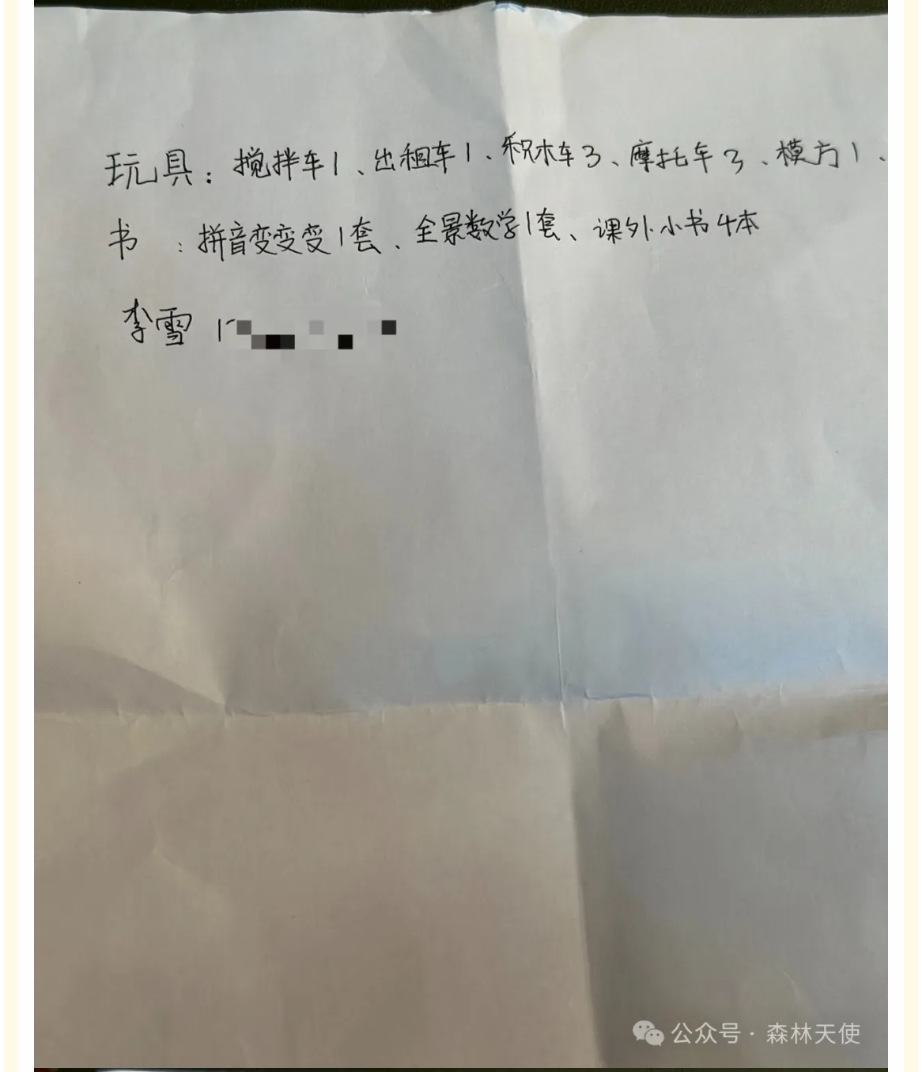 玩具：搅拌车1、出租车1、积木车3、摩托车3、模方1、
书：拼音变变变1套、全景数学1套、课外小书4本
李雪 1
公众号·森林天使